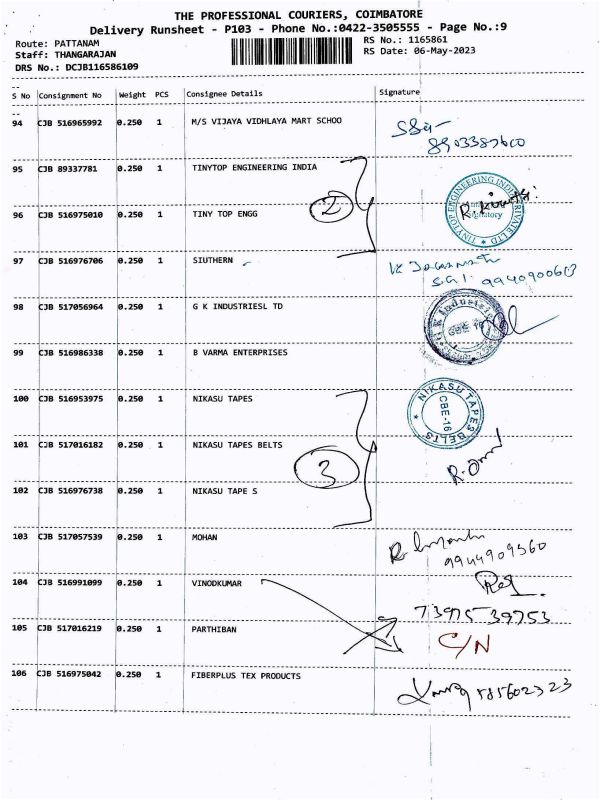 THE PROFESSIONAL COURIERS, COIMBATORE
Delivery Runsheet - P103 - Phone No.:0422-3505555 - Page No.:9
Route: PATTANAM
RS No.: 1165861
Staff: THANGARAJAN
RS Date: 06-May-2023
DRS No.: DCJB116586109
S No Consignment No Weight PCS Consignee Details Signature
94 CJB 516965992 0.250 1 M/S VIJAYA VIDHLAYA MART SCHOO
95 CJB 89337781 0.250 1 TINYTOP ENGINEERING INDIA
2
TINYTOP ENGINEERING INDIA PRIVATE LTD
96 CJB 516975010 0.250 1 TINY TOP ENGG
97 CJB 516976706 0.250 1 SIUTHERN
9940900613
98 CJB 517056964 0.250 1 G K INDUSTRIESL TD
G K Industries
CBE 16
99 CJB 516986338 0.250 1 B VARMA ENTERPRISES
100 CJB 516953975 0.250 1 NIKASU TAPES
NIKASU TAPES BELTS
CBE-16
101 CJB 517016182 0.250 1 NIKASU TAPES BELTS
3
102 CJB 516976738 0.250 1 NIKASU TAPE S
103 CJB 517057539 0.250 1 MOHAN
9944909360
104 CJB 516991099 0.250 1 VINODKUMAR
73975 39753
105 CJB 517016219 0.250 1 PARTHIBAN
C/N
106 CJB 516975042 0.250 1 FIBERPLUS TEX PRODUCTS